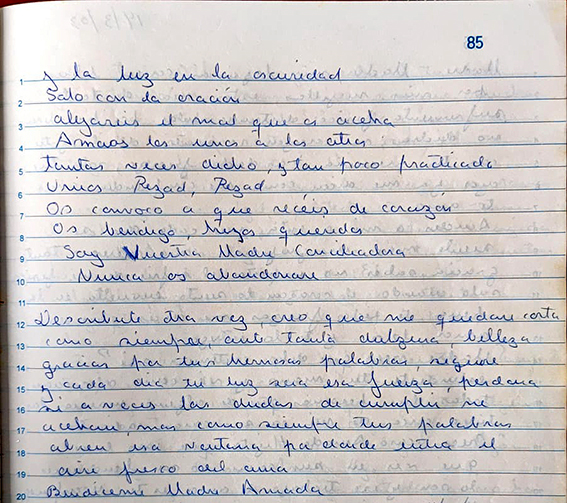 85
y la luz en la oscuridad
Solo con la oración
alejareis el mal que os acecha
Amaos los unos a los otros
tantas veces dicho, y tan poco practicado
Uníos Rezad, Rezad
Os convoco a que recéis de corazón
Os bendigo, hijos queridos
Soy Vuestra Madre Conciliadora
Nunca os abandonare
Describirte otra vez creo que me quedare corta
como siempre, ante tanta dulzura, belleza
gracias por tus hermosas palabras,
y cada dia tu luz sera esa fuerza, perdona
si a veces las dudas de cumplir me
acechan, mas como siempre tus palabras
abren esa ventana por donde entra el
aire fresco del alma
Bendiceme Madre Amada